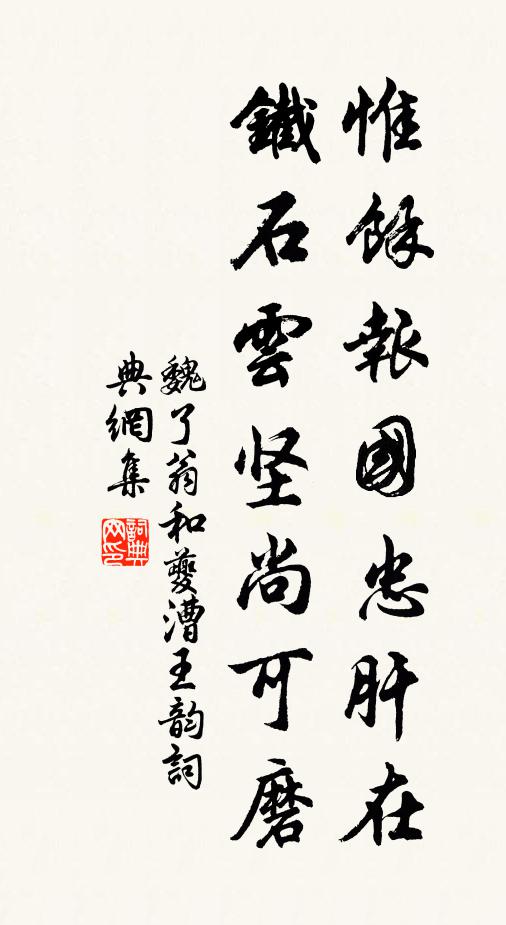 惟餘報國忠肝在
鐵石雲坚尚可磨
魏了翁和夔漕王韵詞
典網集
詞典
网印